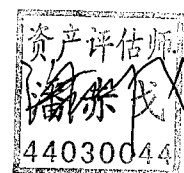 资产评估师
潘
44030044